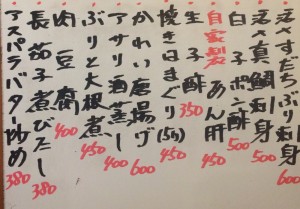 活〆すだちぶり刺身 600
活〆真鯛刺身 500
白子ポン酢 500
自家製あん肝 450
生子酢 350
焼きはまぐり(5ケ) 450
かれい唐揚げ 600
アサリ酒蒸し 400
ぶりと大根煮 450
肉豆腐 400
長茄子煮びたし 380
アスパラバター炒め 380